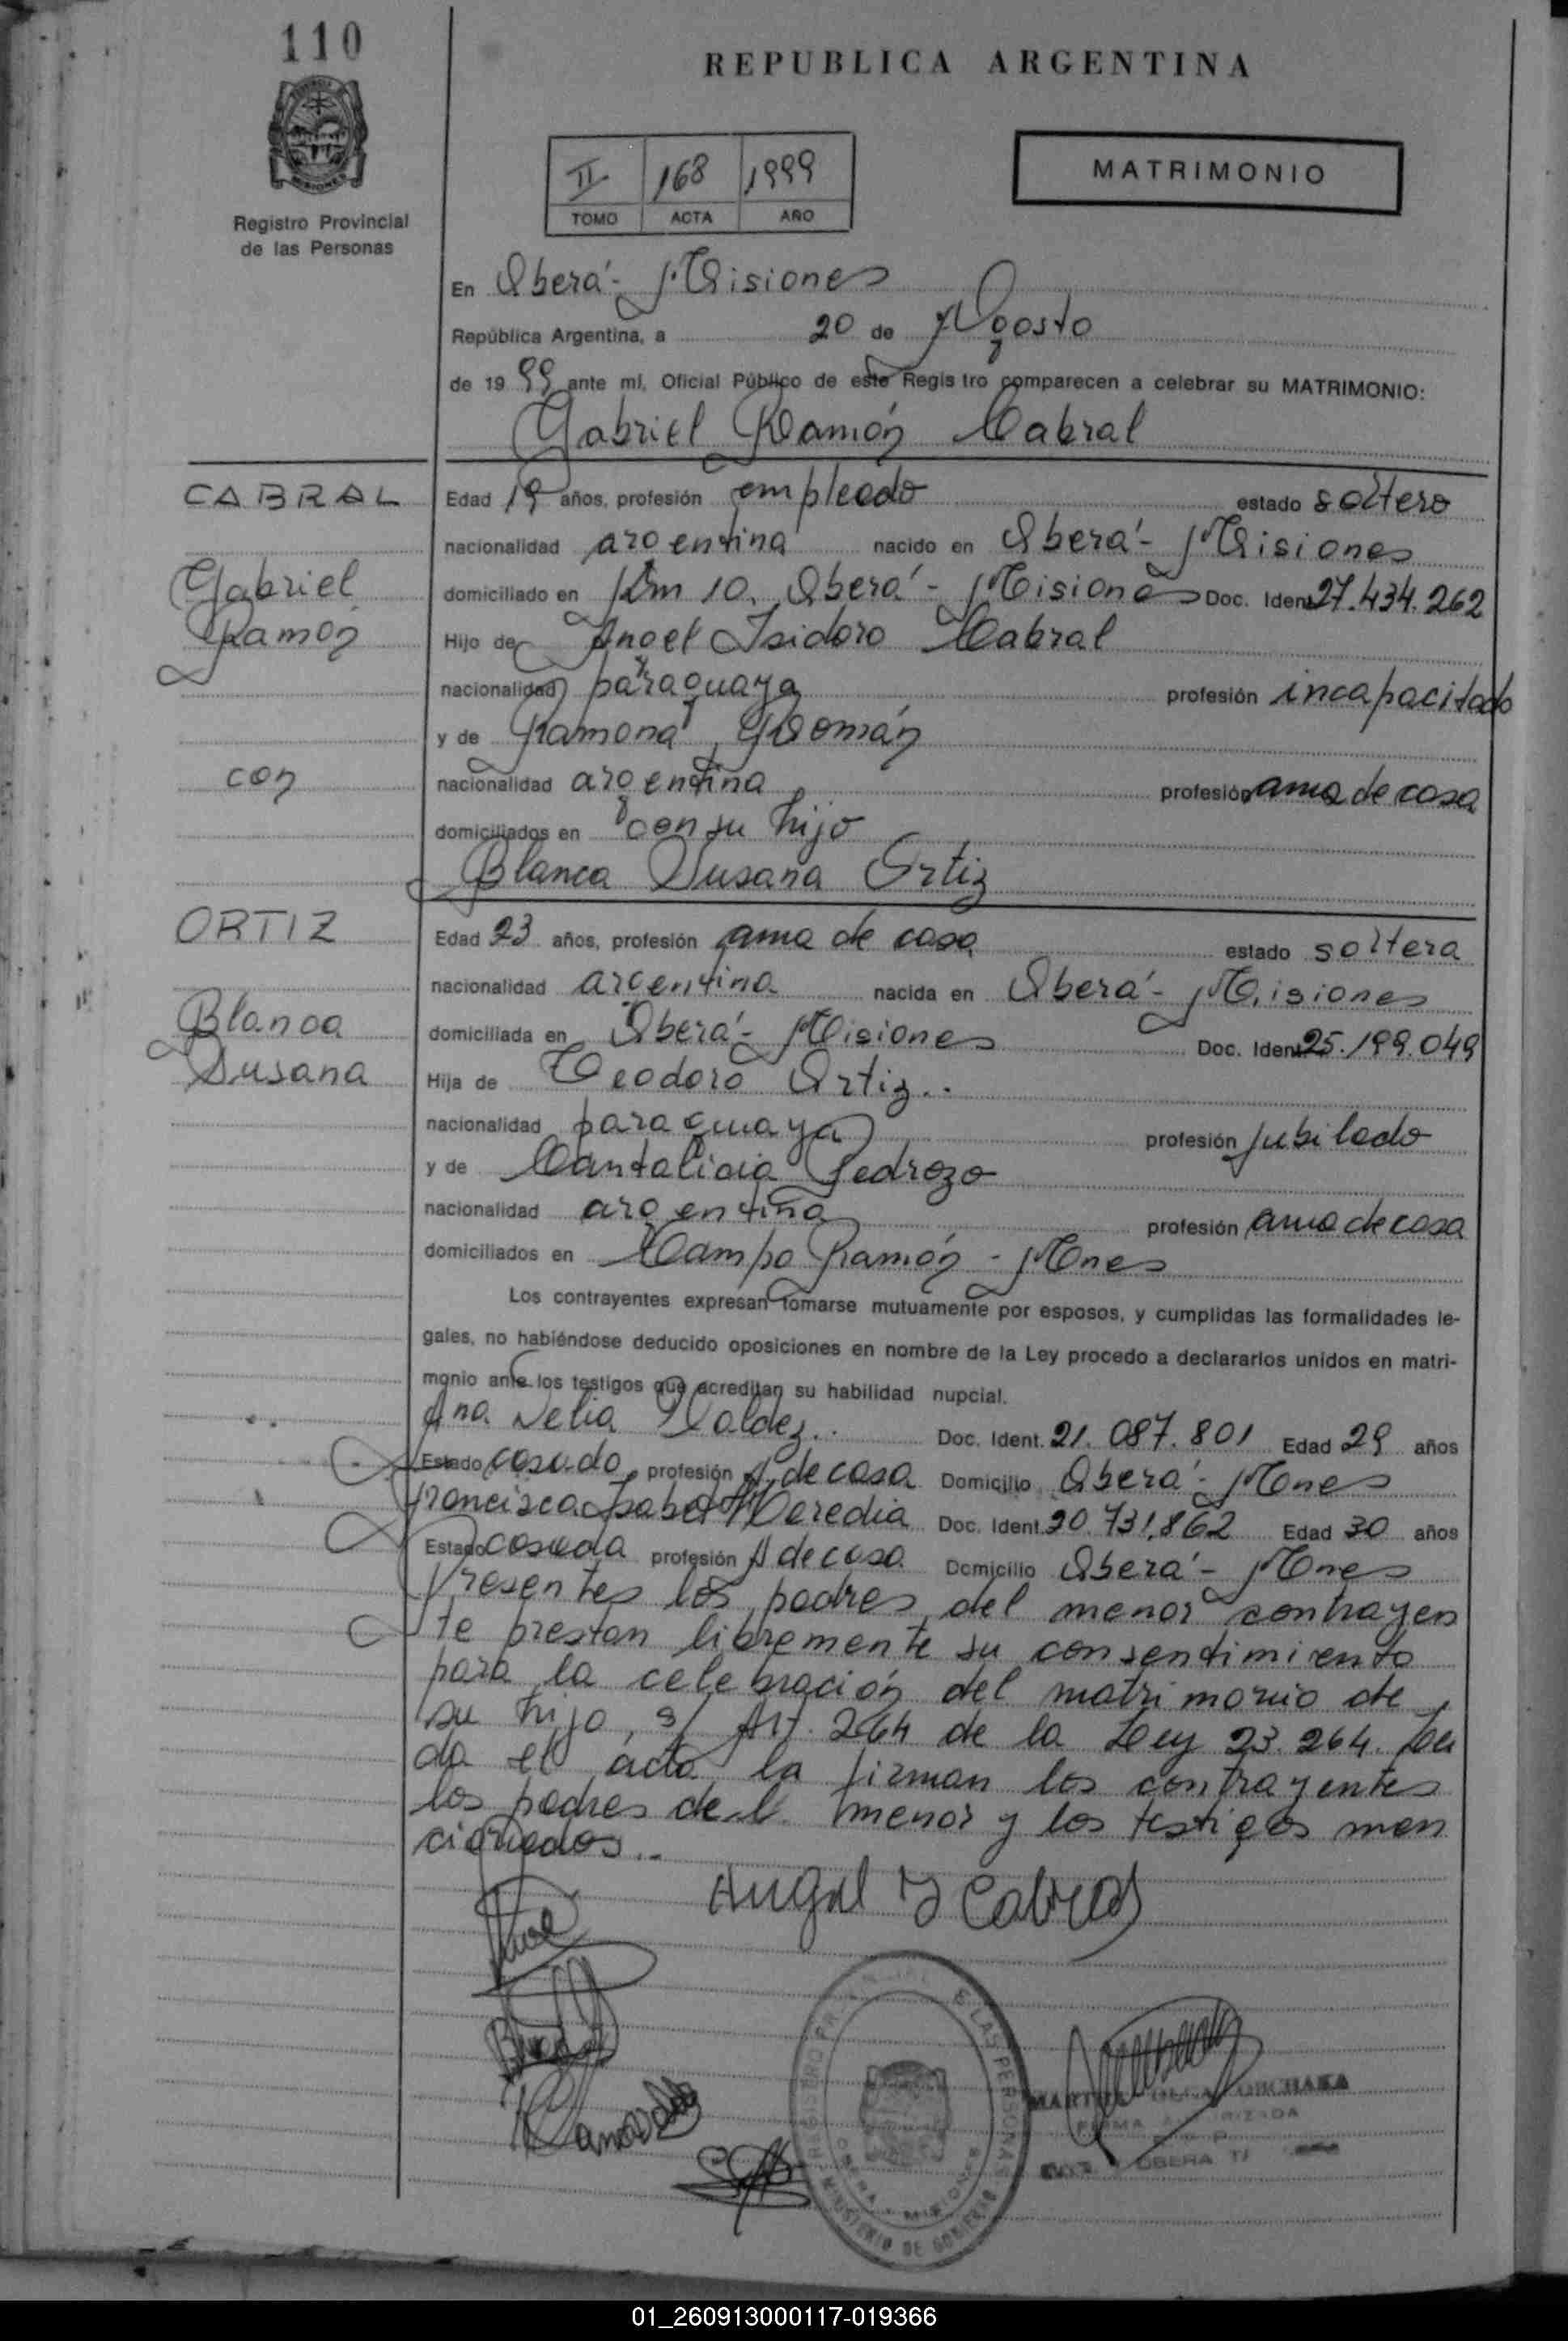 110
REPUBLICA ARGENTINA
II 168 1999
TOMO ACTA AÑO
MATRIMONIO
Registro Provincial
de las Personas
En Oberá - Misiones
República Argentina, a 20 de Agosto
de 19 99 ante mí, Oficial Público de este Registro comparecen a celebrar su MATRIMONIO:
Gabriel Ramón Cabral
CABRAL
Gabriel
Ramón
con
Edad 19 años, profesión empleado estado soltero
nacionalidad argentina nacido en Oberá - Misiones
domiciliado en Km 10. Oberá - Misiones Doc. Ident. 27.434.262
Hijo de Angel Isidoro Cabral
nacionalidad paraguaya profesión incapacitado
y de Ramona Román
nacionalidad argentina profesión ama de casa
domiciliados en con su hijo
Blanca Susana Ortiz
ORTIZ
Blanca
Susana
Edad 23 años, profesión ama de casa estado soltera
nacionalidad argentina nacida en Oberá - Misiones
domiciliada en Oberá - Misiones Doc. Ident. 25.199.049
Hija de Teodoro Ortiz..
nacionalidad paraguaya profesión jubilado
y de Cantalicia Pedrozo
nacionalidad argentina profesión ama de casa
domiciliados en Campo Ramón - Mnes
Los contrayentes expresan tomarse mutuamente por esposos, y cumplidas las formalidades le-
gales, no habiéndose deducido oposiciones en nombre de la Ley procedo a declararlos unidos en matri-
monio ante los testigos que acreditan su habilidad nupcial.
Ana Delia Valdez.. Doc. Ident. 21.087.801 Edad 29 años
Estado casado profesión A. de casa Domicilio Oberá - Mnes
Francisca Isabel Heredia Doc. Ident. 20.731.862 Edad 30 años
Estado casada profesión A de casa Domicilio Oberá - Mnes
Presentes los padres del menor contrayen
te prestan libremente su consentimiento
para la celebración del matrimonio de
su hijo, s/ Art. 264 de la Ley 23.264. Leí
da el acta la firman los contrayentes
los padres del menor y los testigos men
cionados..
Angel I Cabral
REGISTRO PROVINCIAL DE LAS PERSONAS
OBERA - MISIONES
MINISTERIO DE GOBIERNO
FIRMA AUTORIZADA
OBERA
01_260913000117-019366